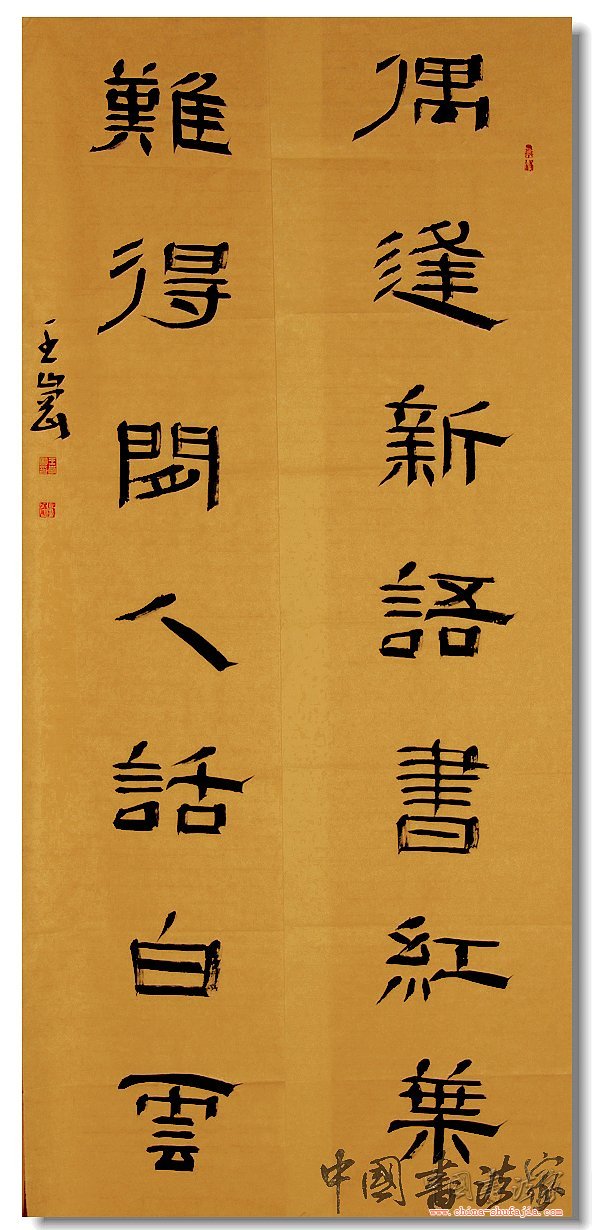 偶逢新語書紅葉
難得閒人話白雲
王
中國書法家
www.china-shufajia.com